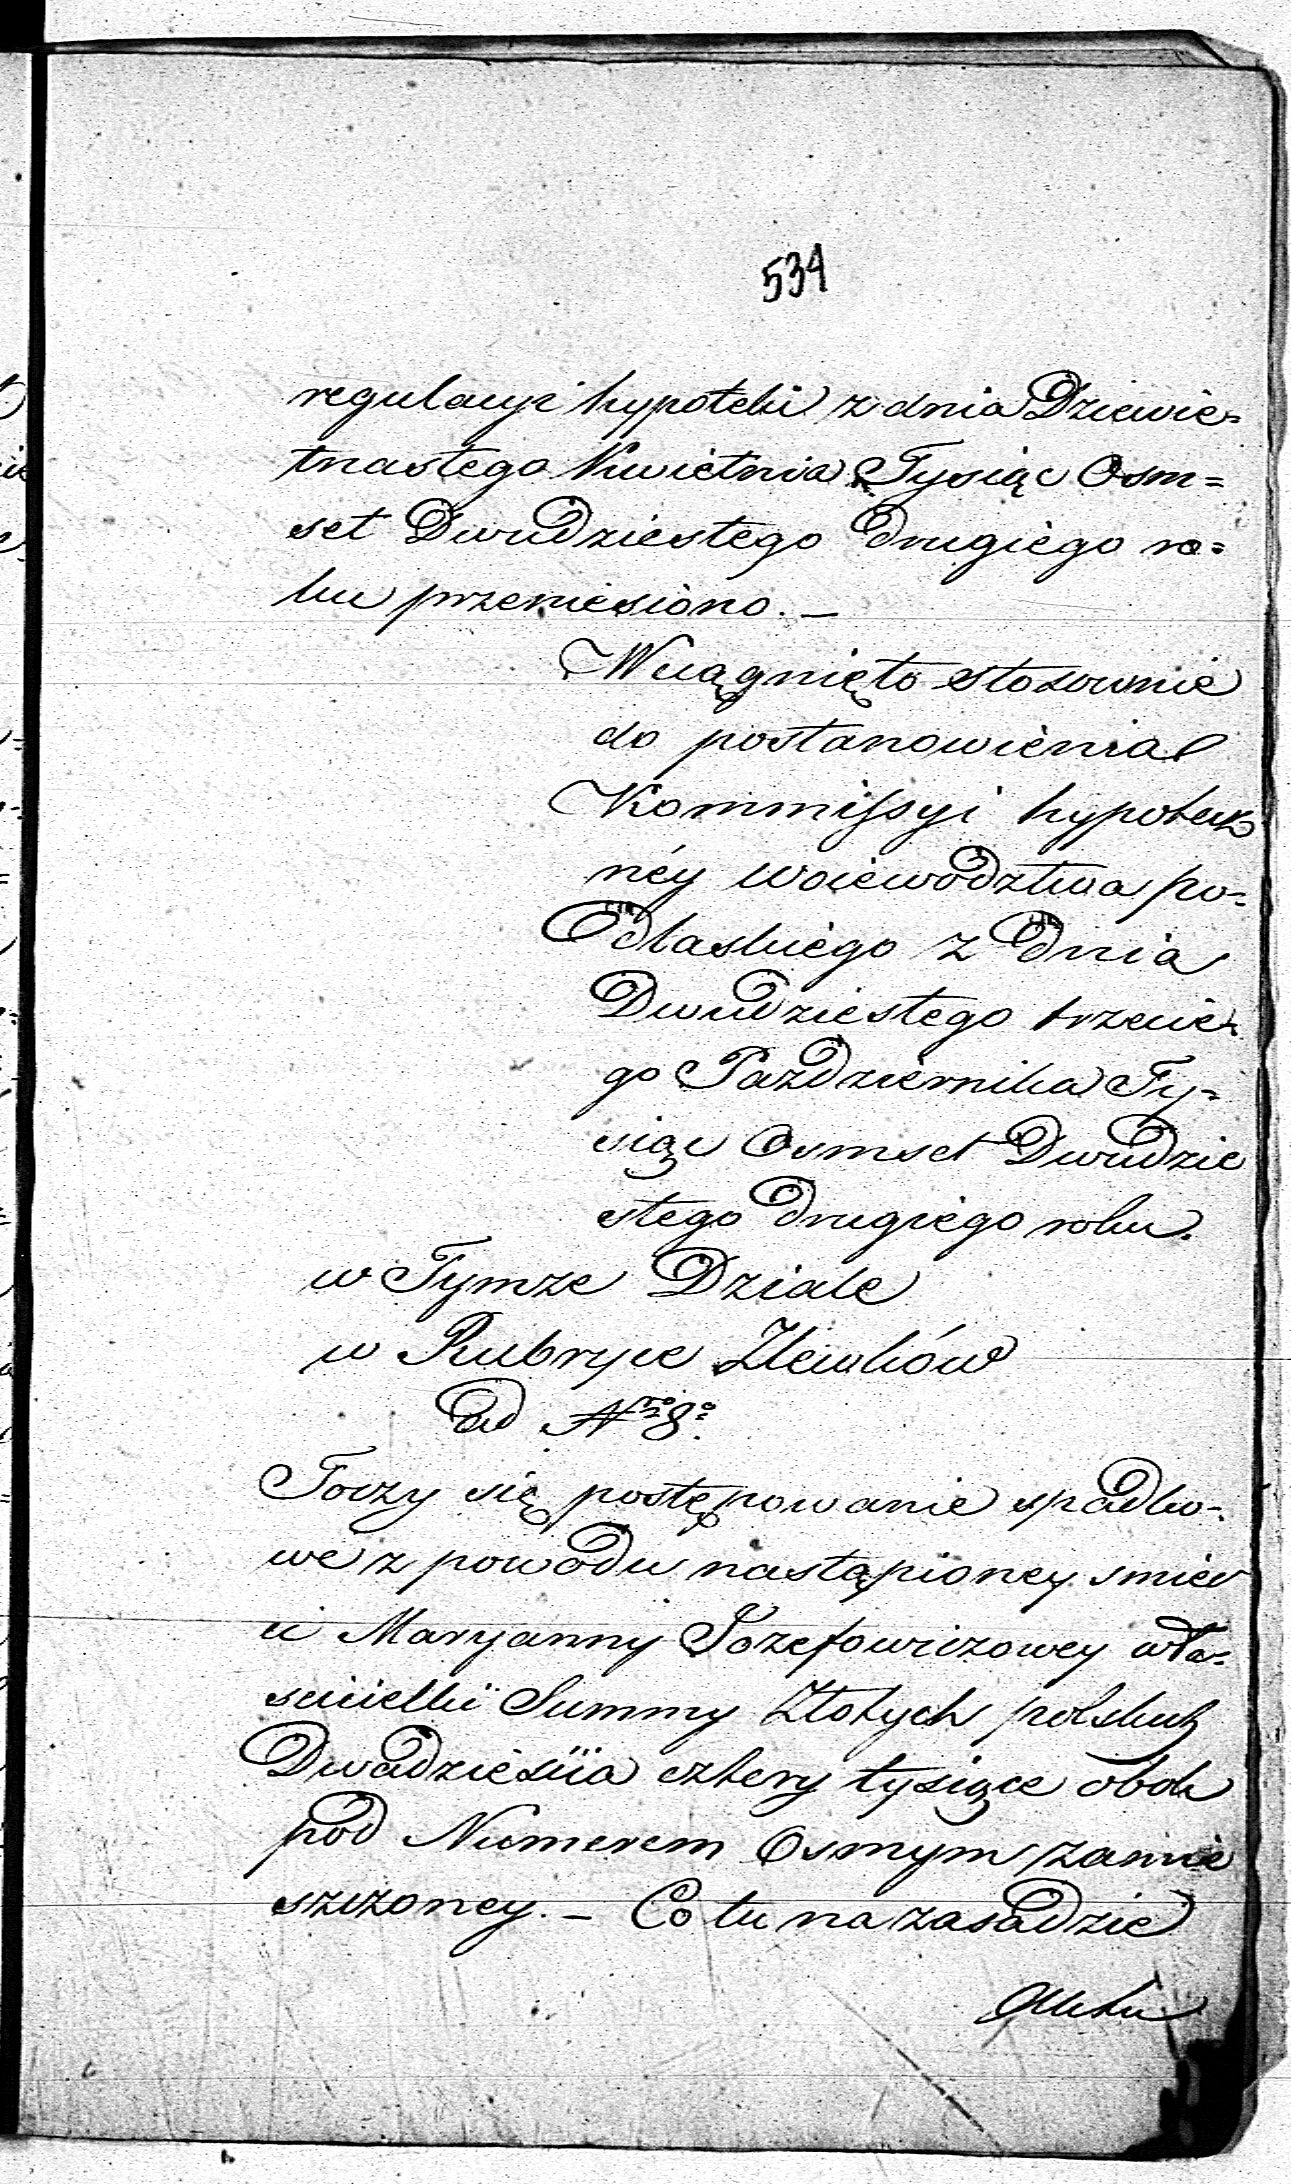 534
regulacyi hypoteki z dnia Dziewię=
tnastego Kwietnia Tysiąc Osm=
set Dwudziestego drugiego ro=
ku przeniesiono. –
Wciągnięto stosownie
do postanowienia
Kommissyi hypotecz
néy woiewodztwa po=
dlaskiego z dnia
Dwudziestego trzecie=
go Pazdziernika Ty=
siąc Osmset Dwudzie
stego drugiego roku.
w Tymze Dziale
w Rubryce Zlewków
ad Nro 8o
Toczy się postępowanie spadko=
we z powodu nastąpioney smier
ci Maryanny Jozefowiczowey wła=
scicielki Summy Złotych polskich
Dwadziescia cztery tysiące obok
pod Numerem Osmym zamie
szczoney. – Co tu na zasadzie
Aktu